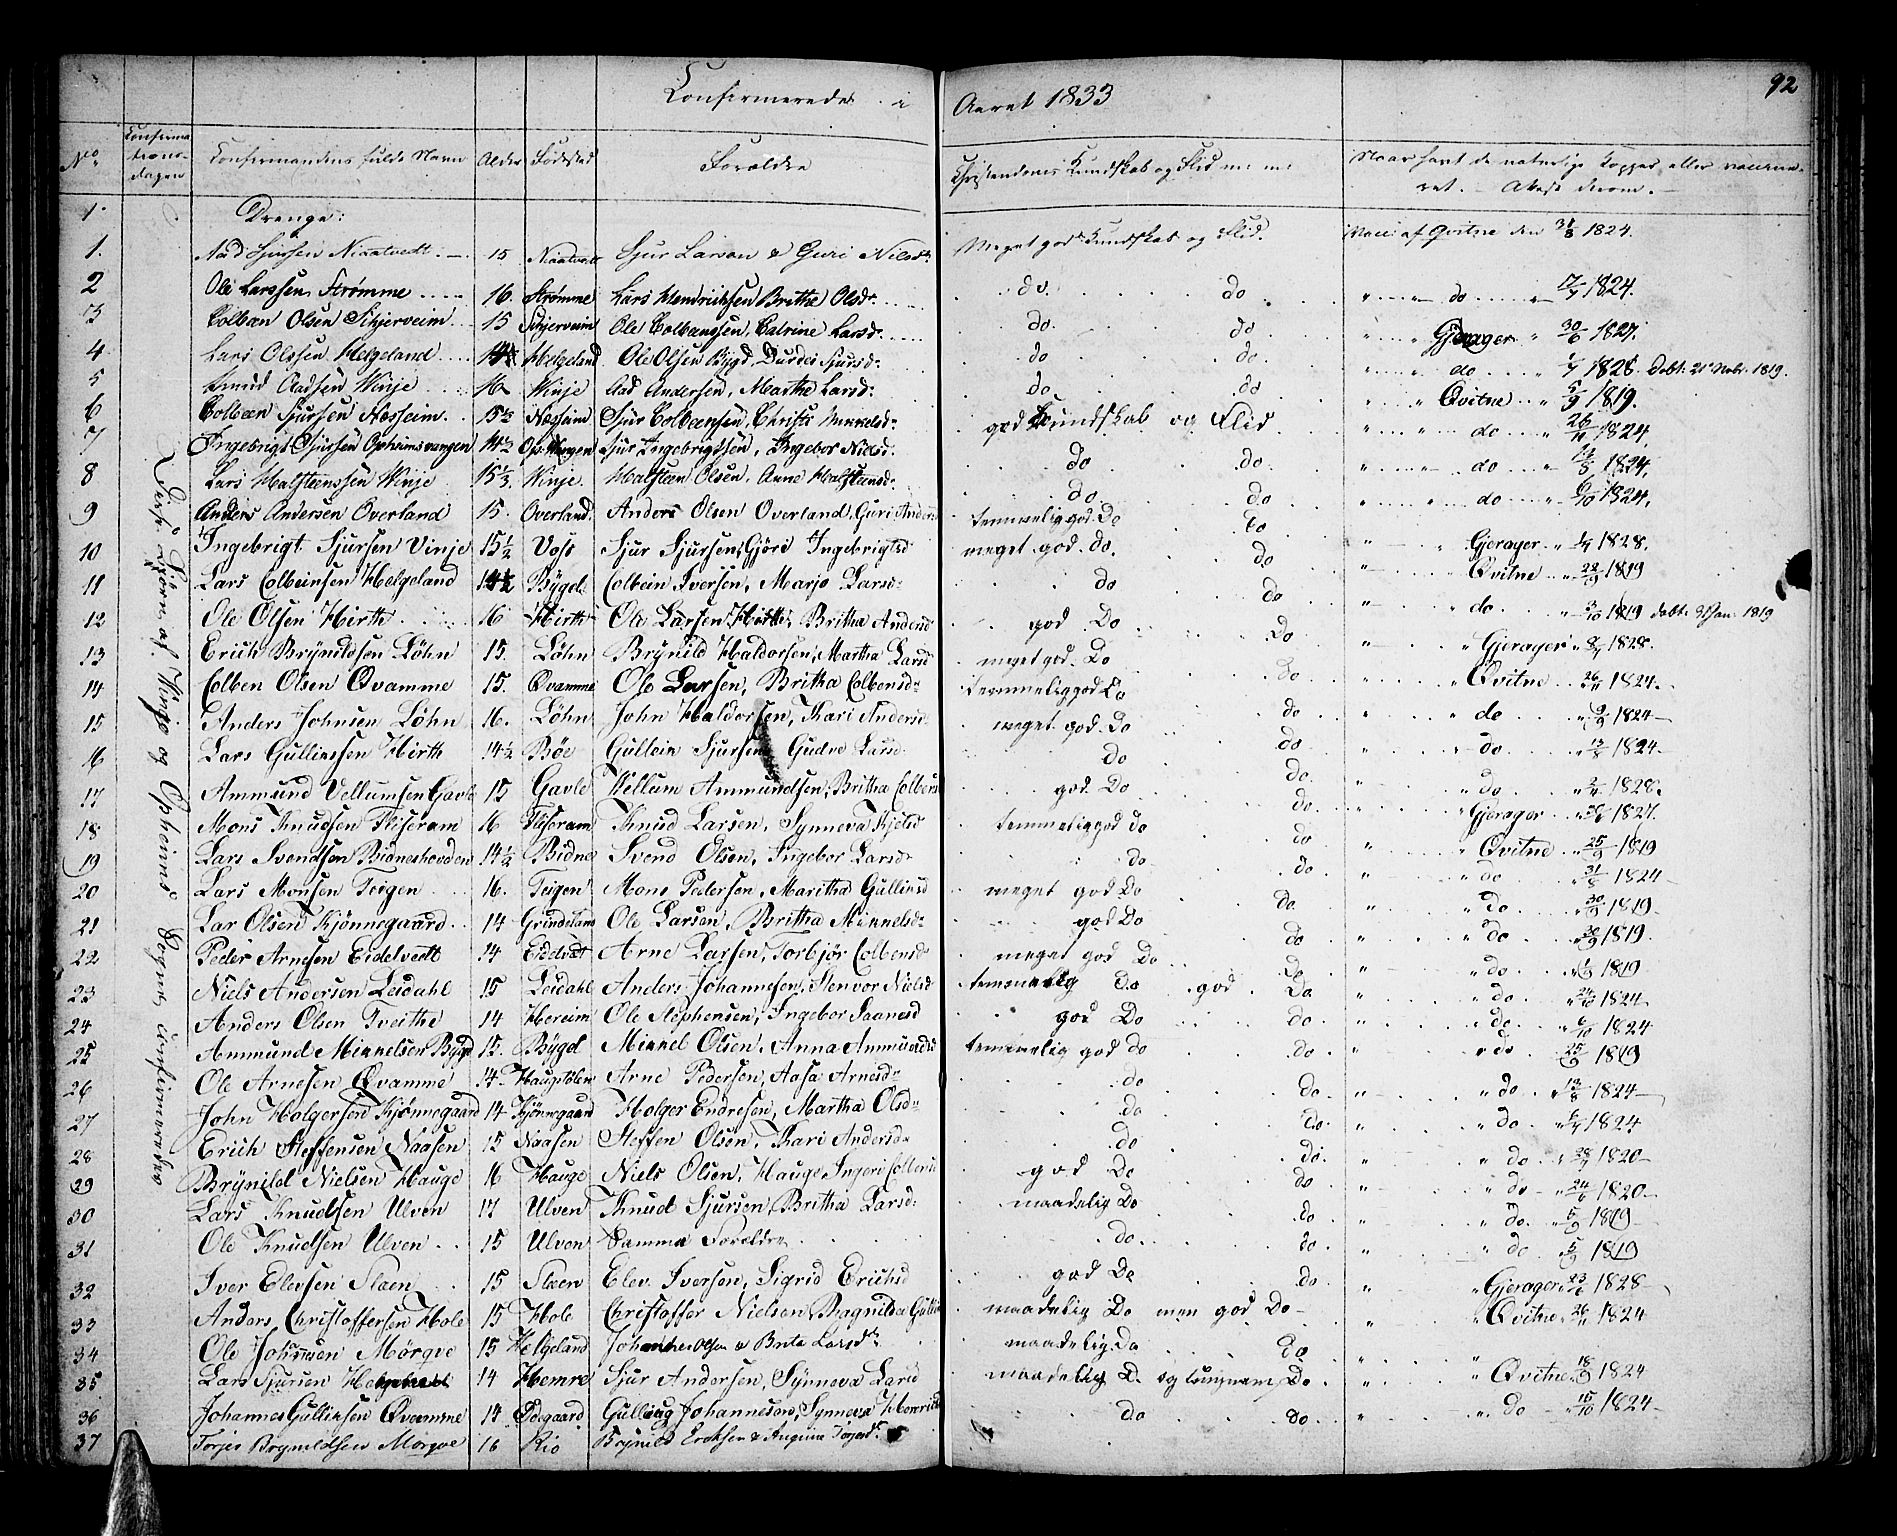 Confirmerede i Aaret 1833
92
No Confirmationsdagen Confirmandens fulde Navn Alder Fødested Forældre Christendoms Kundskab og Flid Naar havt de naturlige Kopper eller
Drenge:
1. Aad Sjursen Niaatvedt 15 Niaatvedt Sjur Larsen & Guri Nilsdr Meget god Kundskab og Flid. Vacc: af Qvitne den 31/8 1824.
2 Ole Larssen Strømme 16. Strømme Lars Hendrichsen Brithe Olsdr do. do do 17/7 1824.
3 Colbæn Olsen Skjerveim 15 Skjerveim Ole Colbængsen, Catrine Larsdr do. do Gjerager 30/6 1827.
4 Lars Olssen Helgeland 14 Helgeland Ole Olsen Bygd, Durdei Sjursdr do do. do 1828 Døbt: 21 Nobr: 1819.
5 Knud Aadsen Winje 16 Winje Aad Andersen, Martha Larsdr do do Qvitne 5/9 1819.
6 Colbæn Sjursen Næsheim 15½ Næsheim Sjur Colbænsen, Christi Mikkelsdr god Kundskab og Flid do 26/11 1824
7 Ingebrigt Sjursen Opheimsvangen 14½ Op:Wangen Sjur Ingebrigtsen, Ingebor Nielsd. do do. do 1824.
8 Lars Halsteenssen Winje 15½ Winje. Halsteen Olsen, Anne Halsteensdr do. do do 6/10 1824.
9 Anders Andersen Overland 15. Overland. Anders Olsen Overland, Guri Anders temmelig god. Do do
10 Ingebrigt Sjursen Vinje 15½ Voss Sjur Sjursen, Gjøri Ingebrigtsd meget god. do. do Gjerager 1828.
11 Lars Colbeinsen Helgeland 14½ Bÿgd Colbein Iversen, Marjo Larsd: do do Qvitne 22/9 1819
12 Ole Olsen Hirth 16 Hirth Ole Larsen Hirth, Britha Andersd god. Do Do do 3/10 1819 døbt: Jan. 1819
13 Erich Brÿnildsen Løhn 15. Løhn Brÿnild Haldorsen, Martha Larsd meget god. Do do Gjerager 1828.
14 Colben Olsen Qvamme 15. Qvamme Ole Larsen, Britha Colbensdr temmelig god Do do Qvitne 26/11 1824.
15 Anders Johnsen Løhn 16. Løhn John Haldorsen, Kari Andersd meget god. Do do do 1824
16 Lars Gullinssen Hirth 14½ Bøe Gullein Sjursen Gudve Larsd Do do. do 13/8 1824
17 Ammund Vellumsen Gavle 15 Gavle Vellum Ammundsen, Britha Colbens god. Do do do 1828.
18 Mons Knudsen Fliseram 16 Fliseram Knud Larsen, Synneva Kjelsd temmelig god do do Gjerager 1827.
19 Lars Svendsen Bidneshovden 14½ Bidne Svend Olsen, Ingebor Larsdr do do. Qvitne 25/9 1819
20 Lars Monsen Teigen 16. Teigen Mons Pedersen, Maritha Gullinsd meget god Do do. do 31/8 1824
21 Lar Olsen Kjønnegaard 14 Grindeland Ole Larsen, Britha Mikkelsdr god Do do do. 30/9 1819.
22 Peder Arnesen Eidelvedt 14 Eidelvedt Arne Larsen, Torbjør Colbensdr meget god Do do do 1819.
23 Niels Andersen Leidahl 15 Leidahl Anders Johannesen, Stenvor Nielsd temmelig Do god Do do 1819
24 Anders Olsen Tveithe 14 Hereim Ole Stephensen, Ingebor Saanesd god Do do. do. 24/10 1824
25 Ammund Mikkelsen Bÿgd 15. Bÿgd Mikkel Olsen, Anna Ammundsd temmelig god Do do. do. 6/10 1824
26 Ole Arnesen Qvamme 14 Arne Pedersen, Aasa Arnesdr do do do 25/9 1819
27 John Holgersen Kjønnegaard 14 Kjønnegaard Holger Endresen, Martha Olsdr do do. do 13/8 1824
28 Erich Steffensen Naasen 15 Naasen Steffen Olsen, Kari Andersdr do do. do. 1824
29 Brÿnild Nielsen Hauge 16 Hauge Niels Olsen, Hauge Ingeri Colbensd god Do do do 1820
30 Lars Knudsen Ulven 17 Ulven Knud Sjursen, Britha Larsdr maadelig Do do. do 24/6 1820
31 Ole Knudsen Ulven 15 Ulven Samma Forældre do. do. do. 5/9 1819
32 Iver Elevsen Slaen 15 Slaen Elev Iversen, Sigrid Erichsd god Do do Gjerager 23/6 1828
33 Anders Christoffersen Hole 15 Hole Christoffer Nielsen, Ragnilda Gullin maadelig Do men god Do Qvitne 26/11 1824
34 Ole Johannesen Mørqve 15 Helgeland Johannes Olsen & Brita Larsdr maadelig. Do Do
35. Lars Sjursen 14 Hemre Sjur Andersen, Synneva Larsd maadelig D. og Do Qvitne 18/9 1824
36 Johannes Gullinsen Qvamme 14 Ødegaard Gulleig Johannesen, Synneva Henrichsd do do do 15/10 1824
37 Torjer Brynildsen Mørqve 16 Rio Brynild Erichsen & Angrina Torjersd.
Disse Børn af Winje og Opheims Sogne confirmerede